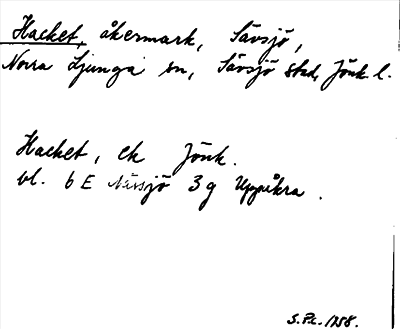 Hacket, åkermark, Sävsjö,
Norra Ljunga sn, Sävsjö stad, Jönk. l.
Hacket, ek Jönk.
bl. 6 E Nässjö 3 g Uppåkra.
S. Pl. 1758.